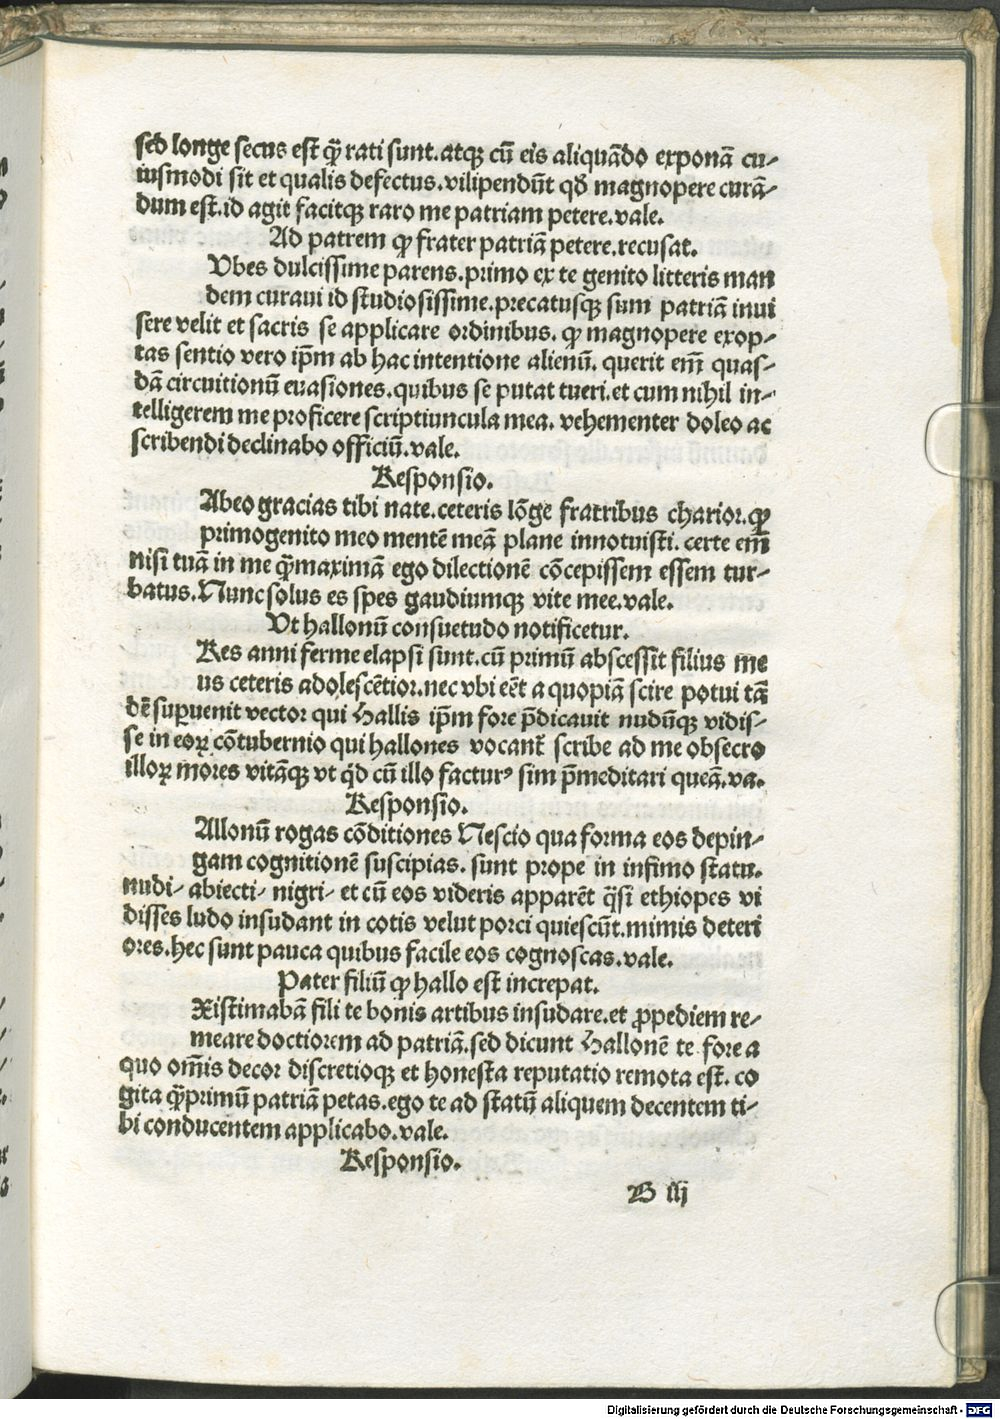 sed longe secus est qȝ̄ rati sunt.atqꝫ cū eis aliquādo exponā cu-
iusmodi sit et qualis defectus.vilipendūt qđ magnopere curā-
dum est.id agit facitqꝫ raro me patriam petere.vale.
Ad patrem ꝙ frater patriā petere.recusat.
Vbes dulcissime parens.primo ex te genito litteris man
dem curaui id studiosissime.precatusqꝫ sum patriā inui
sere velit et sacris se applicare ordinibus.ꝙ magnopere exop-
tas sentio vero ip̄m ab hac intentione alienū.querit em̄ quas-
dā circuitionū euasiones.quibus se putat tueri.et cum nihil in-
telligerem me proficere scriptiuncula mea.vehementer doleo ac
scribendi declinabo officiū.vale.
Responsio.
Abeo gracias tibi nate.ceteris lōge fratribus charior.ꝙ
primogenito meo mentē meā plane innotuisti.certe em̄
nisi tuā in me qȝ̄maximā ego dilectionē cōcepissem essem tur-
batus.Nunc solus es spes gaudiumqꝫ vite mee.vale.
Vt hallonū consuetudo notificetur.
Res anni ferme elapsi sunt.cū primū abscessit filius me
us ceteris adolescētior.nec vbi eēt a quopiā scire potui tā
dē suꝑuenit vector qui Hallis ip̄m fore p̄dicauit nudūqꝫ vidis-
se in eoꝝ cōtubernio qui hallones vocant̄ scribe ad me obsecro
illoꝝ mores vitāqꝫ vt qd̄ cū illo facturꝰ sim p̄meditari queā.va.
Responsio.
Allonū rogas cōditiones Nescio qua forma eos depin-
gam cognitionē suscipias.sunt prope in infimo statu.
nudi- abiecti- nigri- et cū eos videris apparēt q̄si ethiopes vi
disses ludo insudant in cotis velut porci quiescūt.mimis deteri
ores.hec sunt pauca quibus facile eos cognoscas.vale.
Pater filiū ꝙ hallo est increpat.
Xistimabā fili te bonis artibus insudare.et ꝓpediem re-
meare doctiorem ad patriā.sed dicunt Hallonē te fore a
quo om̄is decor discretioqꝫ et honesta reputatio remota est.co
gita qȝ̄primū patriā petas.ego te ad statū aliquem decentem ti-
bi conducentem applicabo.vale.
Responsio.
B iij
Digitalisierung gefördert durch die Deutsche Forschungsgemeinschaft - DFG